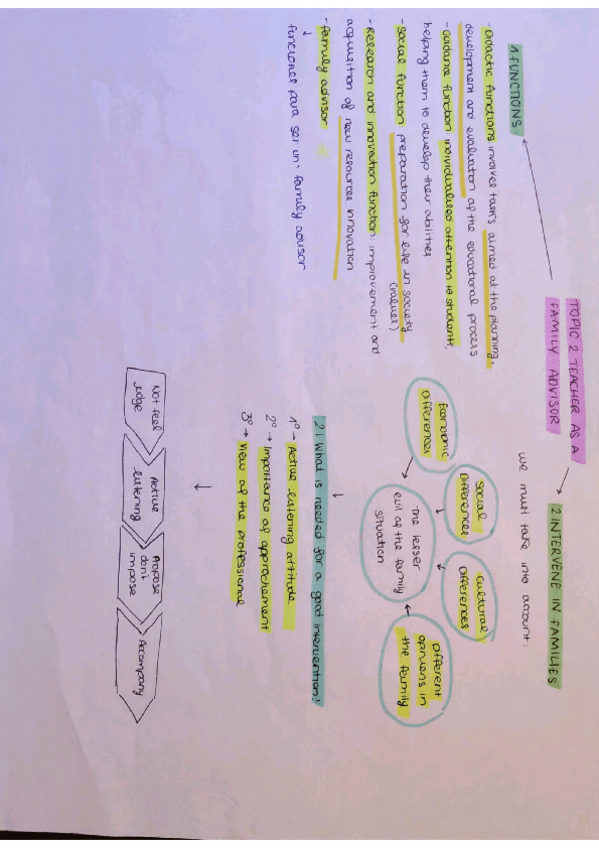 TOPIC 2 TEACHER AS A
FAMILY ADVISOR
1 FUNCTIONS
- Didactic functions involves tasks aimed at the planning,
development and evaluation of the educational process
- Guidance function individualised attention to students,
helping them to develop their abilities
- Social function: preparation for life in society
(values)
- Research and innovation function: improvement and
acquisition of new resources innovation
- family advisor
↓
funciones para ser un: family advisor
2 INTERVENE IN FAMILIES
we must take into account:
Economic
differences
Social
Differences
Cultural
differences
Different
opinions in
the family
The lesser
evil of the family
situation
↓
2.1 What is needed for a good intervention?
1º → Active listening attitude
2º → Importance of approchement
3º → View of the professional
↓
Not feel
judge
Active
listening
Propose
don't
impose
Accompany